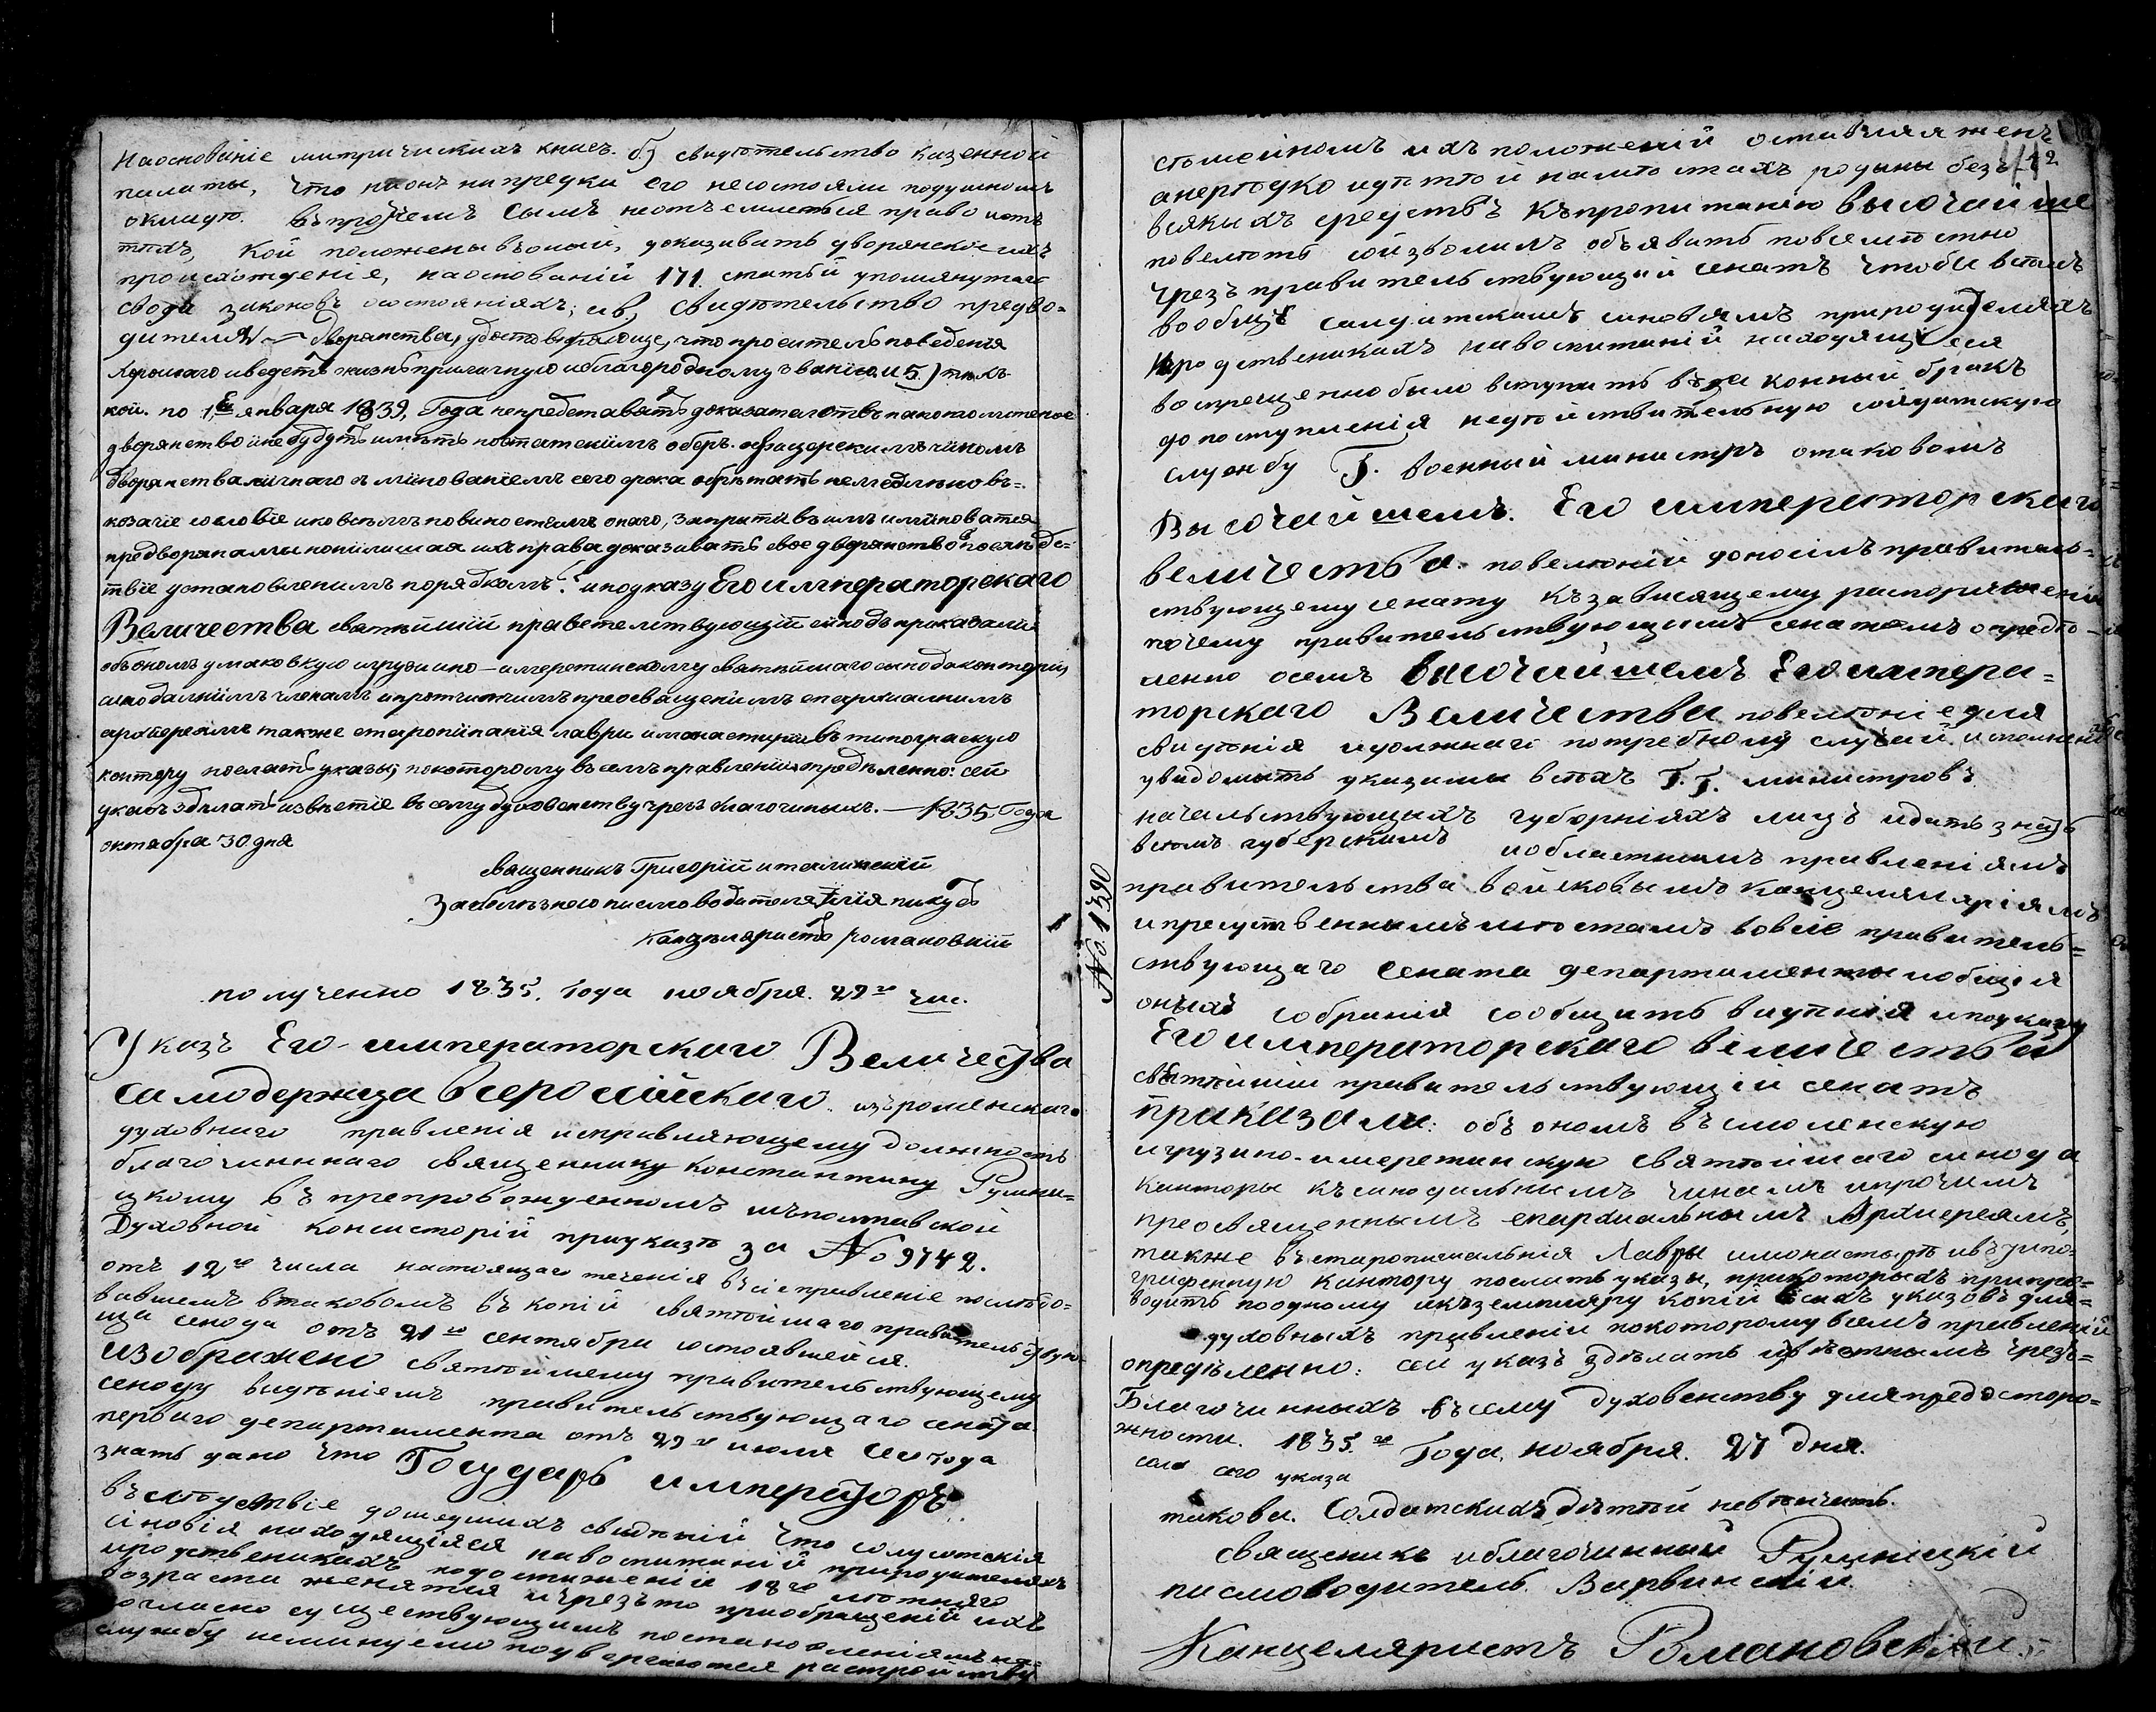 Наоснованіе митрическихъ книгъ. б) свидѣтельство казенной
палаты, что ни онъ ни предки его несостояли подушномъ
окладѣ. въпрочемъ симъ неотъемлется право и отъ
тѣхъ, кой положены въ оный, доказывать дворянское ихъ
происхожденіе, наоснованій 171 статьй упомянутаго
свода законовъ осостояніяхъ; ив) свидѣтельство предво=
дителя дворянства, удостовѣряюще, что проситель поведенія
хорошаго иведетъ жизнь приличную иблагородному званію. и 5) тѣхъ
кой. по 1е января 1839, Года непредставятъ доказателствъ напотомственое
дворянство инебудутъ имѣть постатейнимъ оберъ. офицерскимъ чиномъ
дворянства личнаго съ минованіемъ сего срока обратать немедлѣно въ=
козачіе сословіе иковсѣмъ повиностямъ онаго, запрѣтивъ имъ имяноватся
предворянамы нелишая ихъ права доказивать свое дворянство послѣдс=
твіе установленимъ порядкомъ: ипоуказу Его императорскаго
Величества святѣйшій правителствующій синодъ приказали
объономъ умаковкую игрузино-имеретинскомму святѣйшаго синода конторы,
синодалнимъ членамъ ипротчимъ преосвященимъ епархиалнимъ
архіереямъ также ставропигіалнія лаври имонастири въ типограскую
контору послать указы, покоторому всемъ правленіи опредѣленно: сей
указъ здѣлать извѣстіе всему духовенству чрезъ благочиныхъ. — 1835. Года
октября 30 дня
священникъ Григорій италинскій
За болѣзнею писмоводителя Илія пикусъ
Канцеляристъ романовскій
полученно 1835. года ноября. 29го чис.
Указъ Его императорскаго Величества
самодержца всеросійскаго. изъ роменскаго
духовнаго правленія исправляющему должность
благочиннаго священнику константину Рушни=
цкому въ препровожденномъ изъполтавской
Духовной консисторій приуказѣ за №9742.
отъ 12го числа настоящаго теченія въсіе правленіе послѣдо=
вавшемъ втаковомъ въ копій святѣйшаго правительствую=
ща сенода отъ 21го сентября состоявшейся.
изображено святѣйшему правительствующему
сеноду видѣніемъ правительствующаго сената
перваго департамента отъ 29го июля сего года
знать дано что Государь императоръ
въслѣдствіе дошедшихъ свидѣній что солдатскія
синовія находящіяся навоспитаній природителяхъ
иродственикахъ подостиженій 18го лѣтняго
возраста женятся ичрезъто приобращеній ихъ
согласно существующимъ постановленіямъ на=
службу неминуемо подвергаются растройству
№ 1390
142
стѣмейномъ ихъ положеній оставляя женъ
анерѣдко идѣтей намѣстахъ родины безъ
всякыхъ средствъ къпропитанію высочайше
повелѣть соизволилъ объявить повсемѣстно
чрезъ правительствующий сенатъ чтобы всѣмъ
вообще салдатскимъ синовямъ природителяхъ
иродственикахъ навоспитаній находящіеся
воспрещенно было вступить взаконный бракъ
допоступленія недѣйствительную солдатскую
службу Г. военный министръ отаковомъ
Высочайшемъ. Его императорскаго
величества. повелѣній доносилъ правитель=
ствующему сенату къзависящему распоряженію
почему правительствующимъ сенатомъ опредѣ=
ленно осемъ высочайшемъ Его импера=
торскаго Величества повелѣніе для
свидѣнія идолжнаго потребному случай исполненія
увидомить указами всѣхъ Г. Г. министровъ
начальствующыхъ губерніяхъ лицъ идать знать
всѣмъ губерскимъ иобластнымъ правленіямъ
правительства войсковымъ канцеляріямъ
иприсудственнымъ мѣстамъ вовсіе правитель=
ствующаго сената департаменты иобщія
оныхъ собранія сообщить видѣнія ипоуказу
Его императорскаго величества
святѣйшій правительствующій сенатъ
приказали: объ ономъ въсмоленскую
игрузино-имеретинскую святѣйшаго синода
канторы къ синодальнымъ чинамъ ипрочимъ
преосвященнымъ епархиальнымъ Архиереямъ,
также въставропигиальнія Лавры имонастырѣ ивътипо=
графенную кантору послать указы, прикоторыхъ припро=
водить поодному икземпляру копій сихъ указовъ для=
духовныхъ правленій покоторому всемъ правленій
опредѣленно: сей указъ здѣлать извѣстнымъ чрезъ=
Благочинныхъ всему духовенству дляпредосторо=
жности. 1835.го Года, ноября. 27 дня.
сего указа
такови. Солдатскихъ дѣтей невѣнчать.
священикъ иблагочинный Рушницкій
писмоводитель. Варвинскій
Канцеляристъ Романовскій